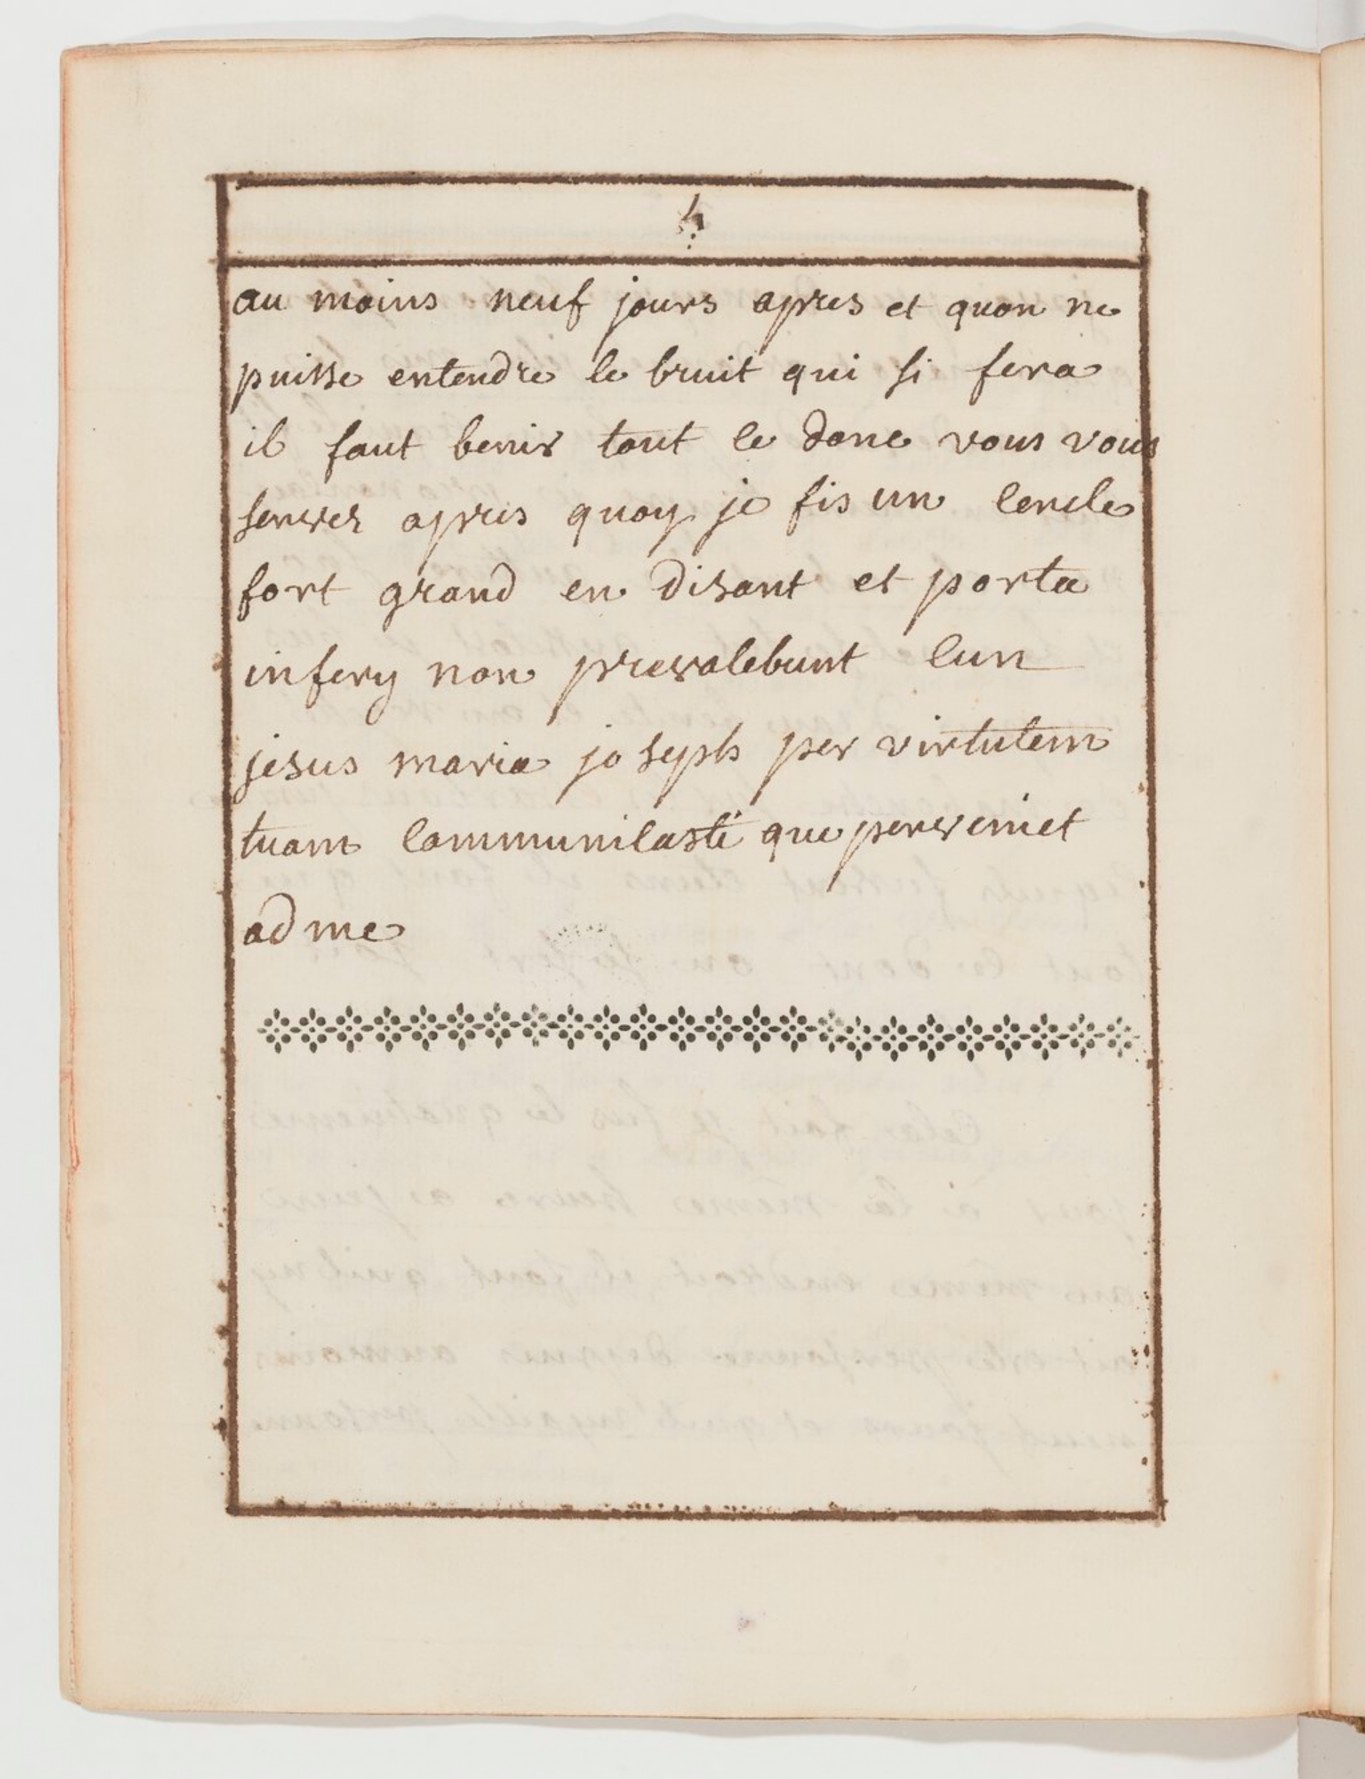 4
au moins neuf jours apres et quon ne
puisse entendre le bruit qui si fera
il faut benir tout le donc vous vous
servez apres quoy je fis un cercle
fort grand en disant et porta
infery non prevalebunt cun
jesus maria joseph per virtutem
tuam communicasti que perveniet
ad me